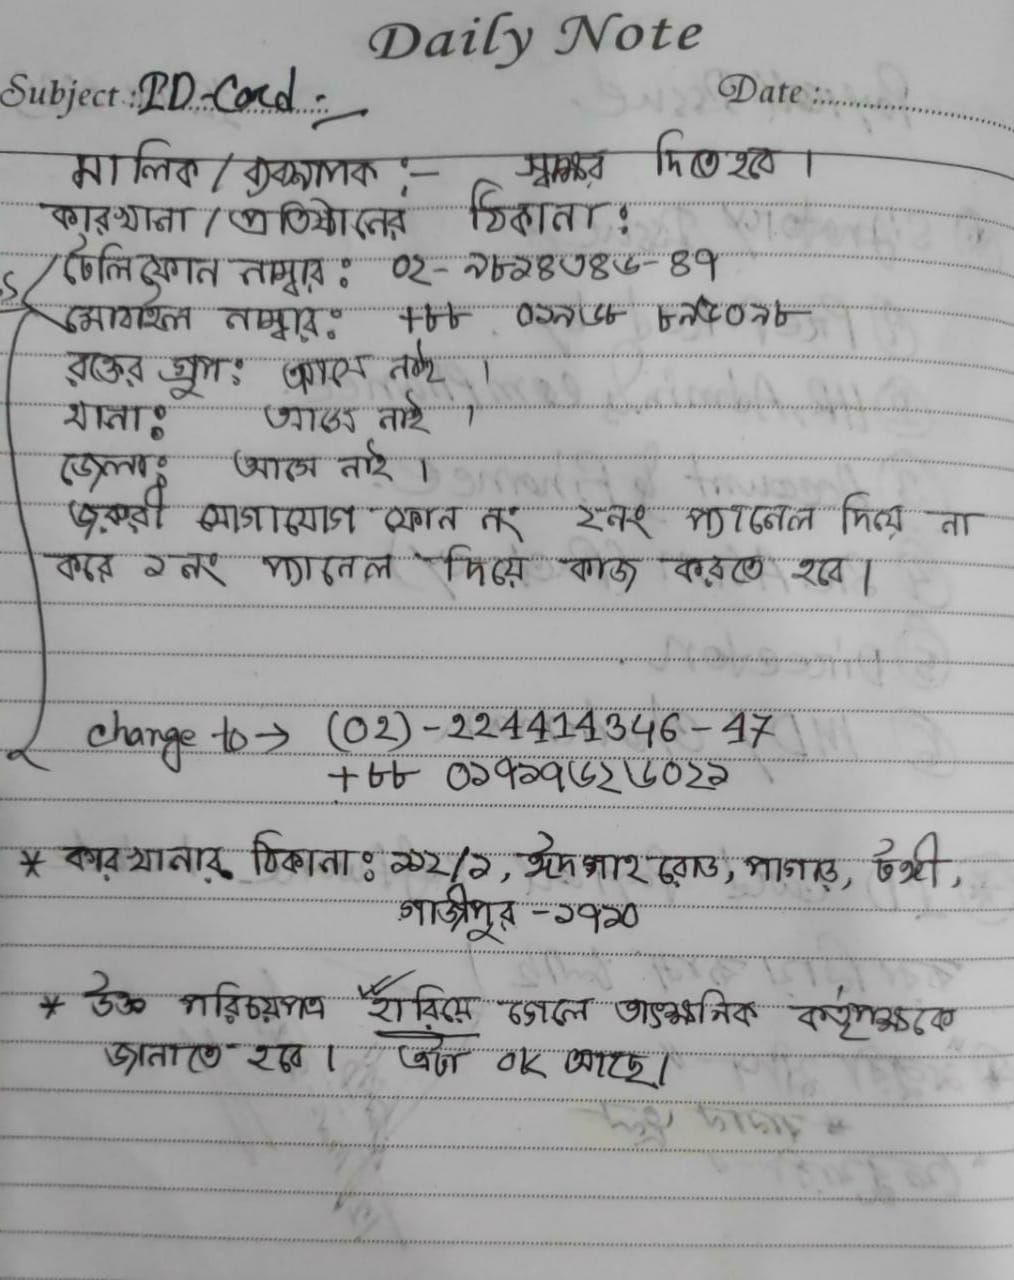 Daily Note
Subject : ID-Card :- Date :
মালিক / ব্যবস্থাপক :- স্বাক্ষর দিতে হবে ।
কারখানা / প্রতিষ্ঠানের ঠিকানা :
টেলিফোন নাম্বার : ০২-
মোবাইল নাম্বার : +৮৮
রক্তের গ্রুপ : আসে নাই ।
থানা : আসে নাই ।
জেলা : আসে নাই ।
জরুরী যোগাযোগ ফোন নং ২নং প্যানেল দিয়ে না
করে ১নং প্যানেল দিয়ে কাজ করতে হবে ।
change to → (02)-224414346-47
+৮৮ ০১৭১৭৬২৬০২১
* কারখানার ঠিকানা : ১১২/১, ঈদগাহ রোড, পাগাড়, টঙ্গী,
গাজীপুর -১৭১০
* উক্ত পরিচয়পত্র হারিয়ে গেলে তাৎক্ষনিক কর্তৃপক্ষকে
জানাতে হবে । এটা OK আছে।